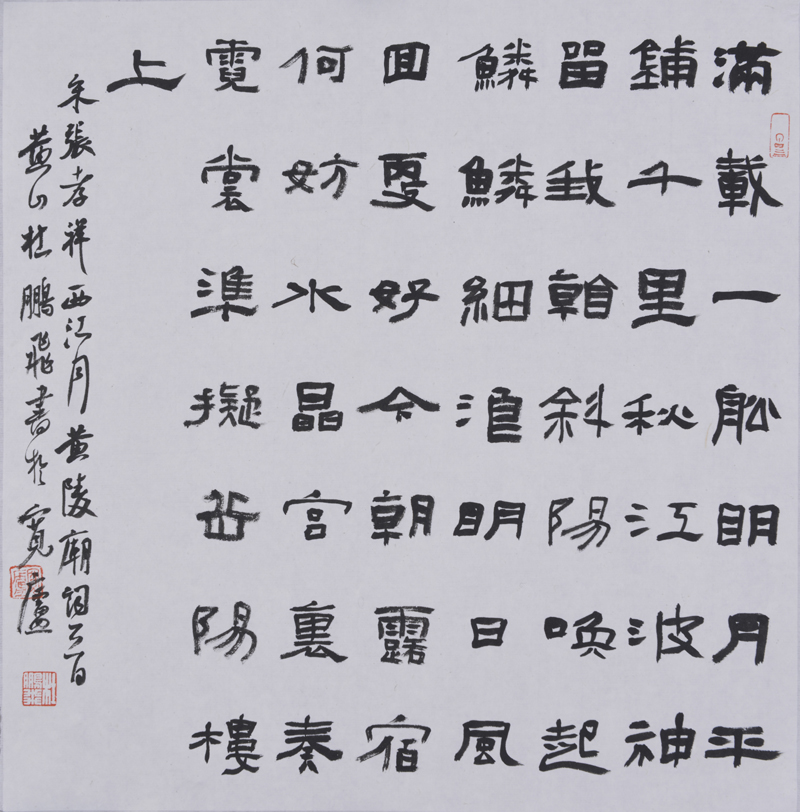 滿載一舩眀月平
鋪千里秋江波神
留我看斜陽喚起
鱗鱗細浪眀日風
回更好今朝露宿
何妨水晶宮裏奏
霓裳準擬岳陽樓
上
宋張孝祥西江月黄陵廟詞一首
黄山杜鵬飛書於寬廬